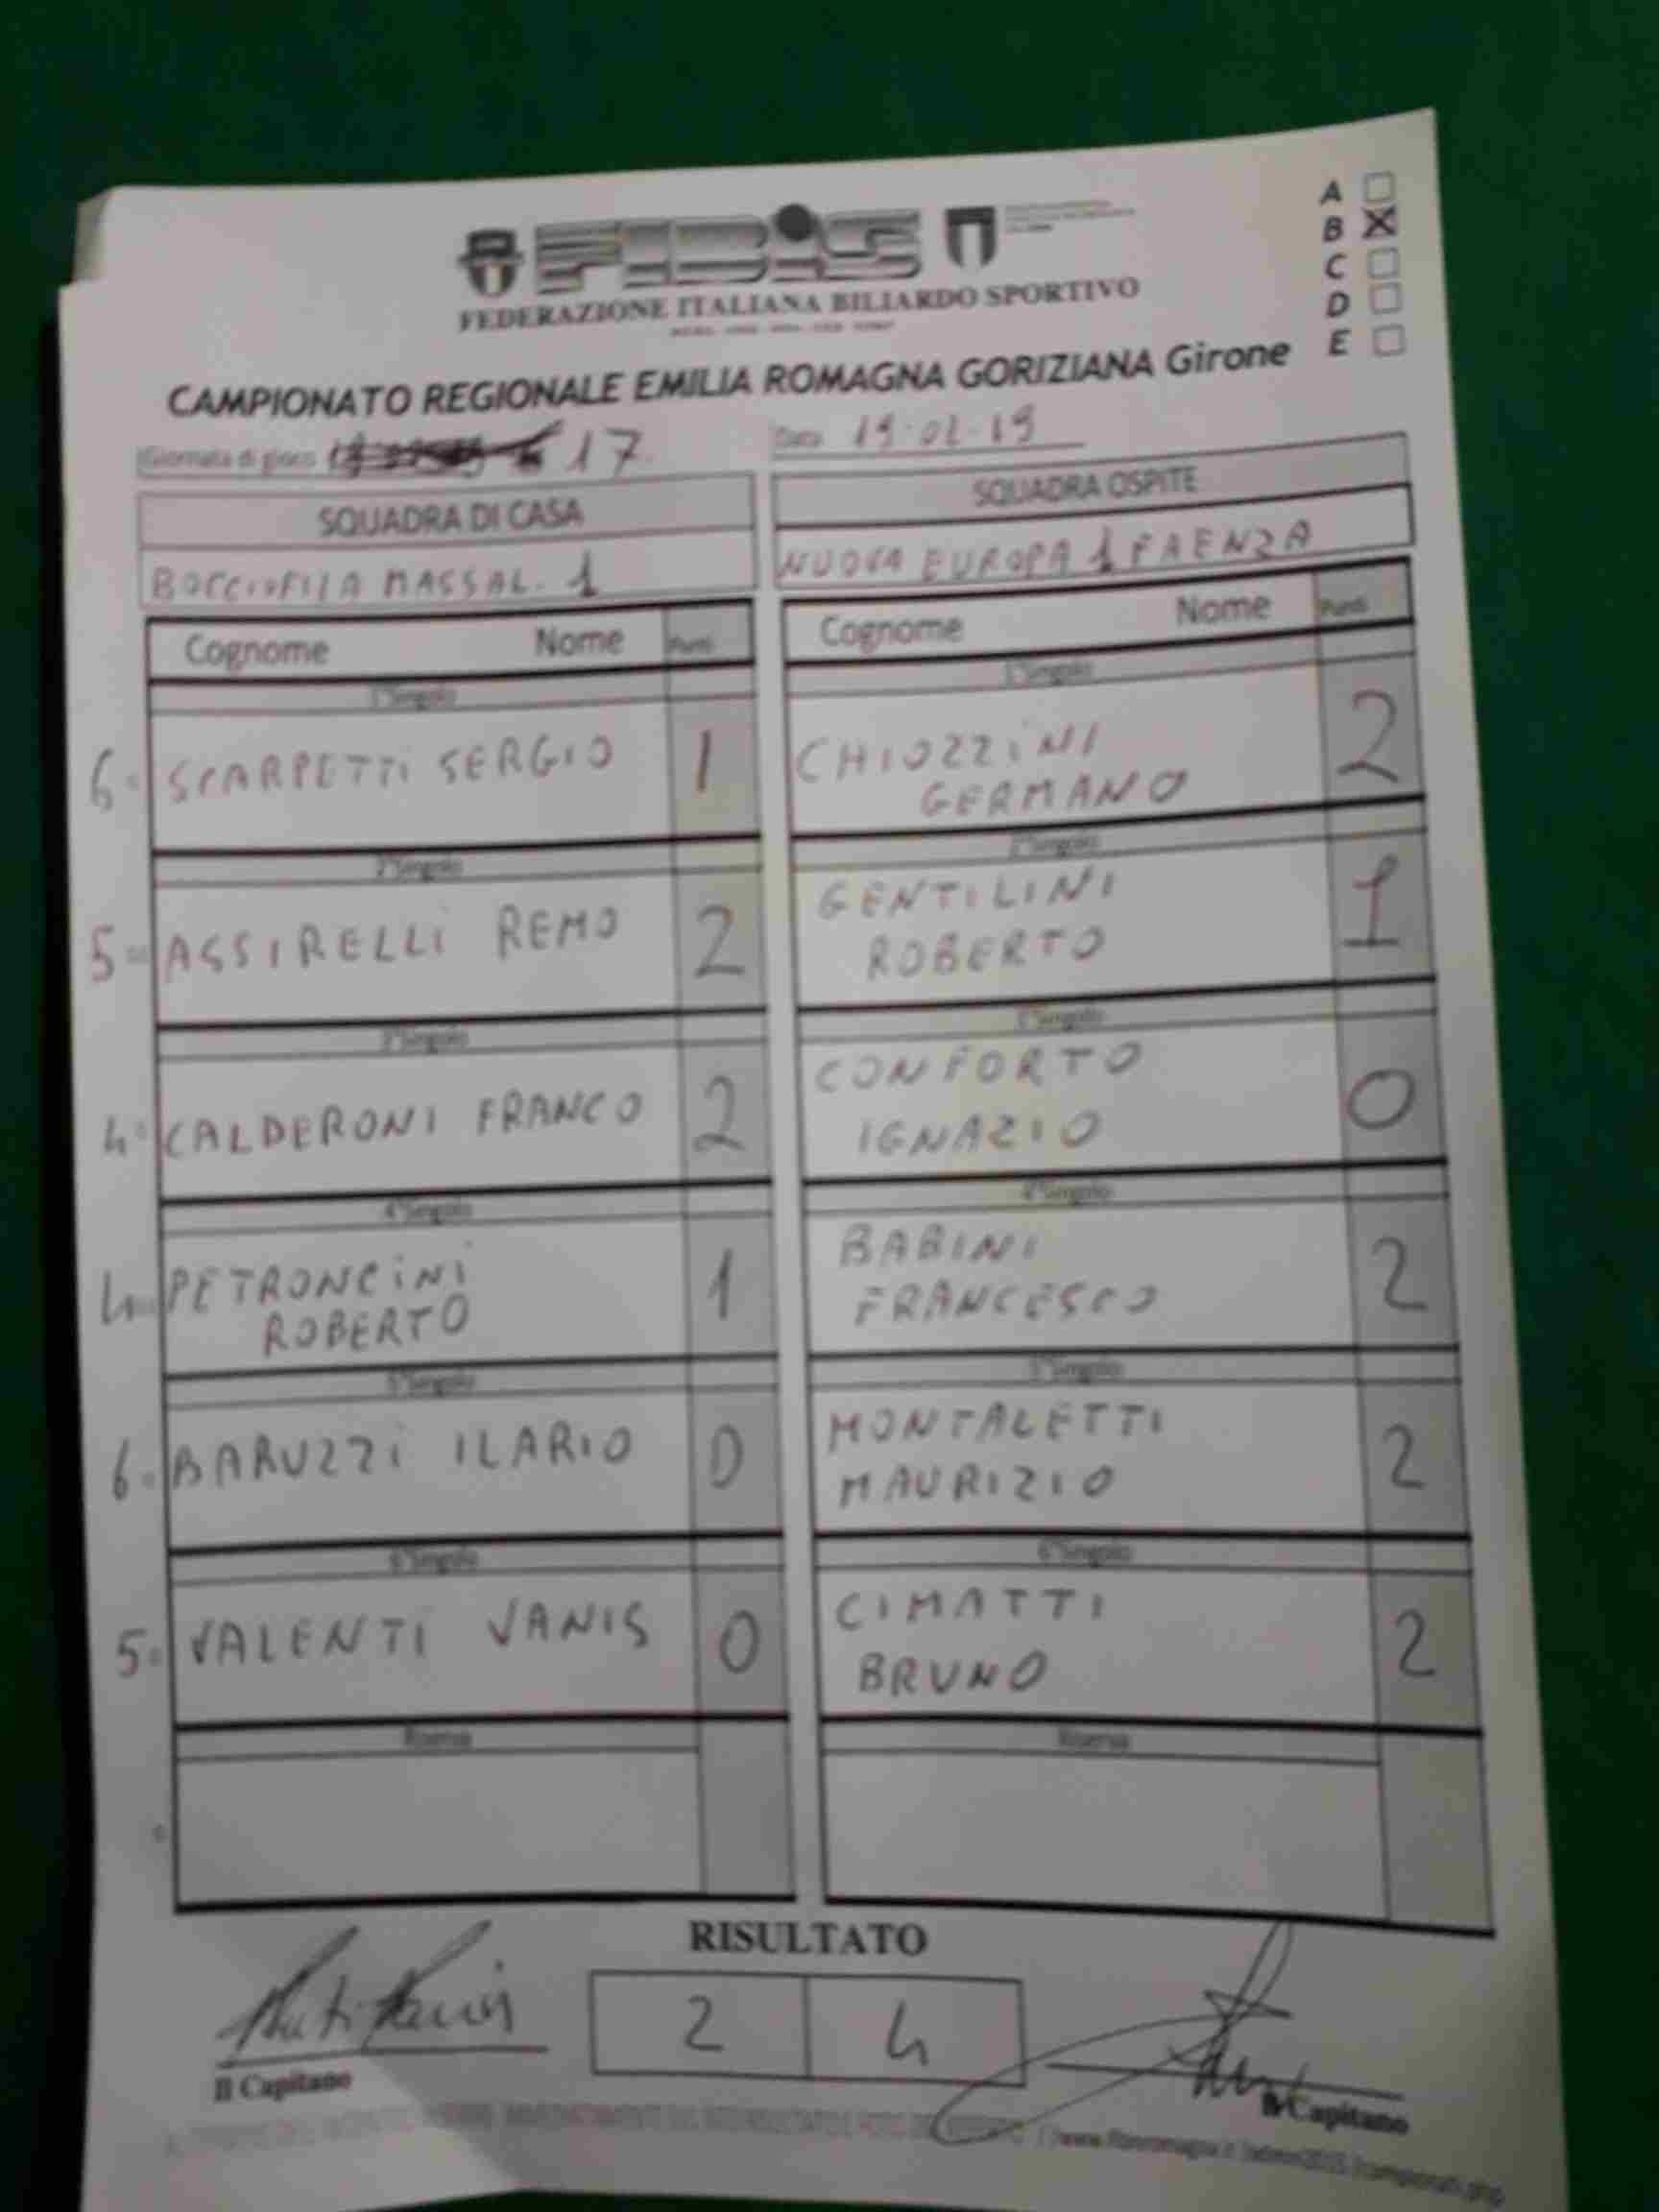 A
B X
C
D
E
FIBIS
FEDERAZIONE ITALIANA BILIARDO SPORTIVO
CAMPIONATO REGIONALE EMILIA ROMAGNA GORIZIANA Girone
Giornata di gioco 17 Data 19-02-19
SQUADRA DI CASA SQUADRA OSPITE
BOCCIOFILA MASSAL. 1 NUOVA EUROPA 1 FAENZA
Cognome Nome Punti Cognome Nome Punti
1°Singolo 1°Singolo
6= SCARPETTI SERGIO 1 CHIOZZINI
GERMANO 2
2°Singolo 2°Singolo
5= ASSIRELLI REMO 2 GENTILINI
ROBERTO 1
3°Singolo 3°Singolo
4= CALDERONI FRANCO 2 CONFORTO
IGNAZIO 0
4°Singolo 4°Singolo
4= PETRONCINI
ROBERTO 1 BABINI
FRANCESCO 2
5°Singolo 5°Singolo
6= BARUZZI ILARIO 0 MONTALETTI
MAURIZIO 2
6°Singolo 6°Singolo
5= VALENTI VANIS 0 CIMATTI
BRUNO 2
Riserva Riserva
RISULTATO
2 4
Il Capitano Il Capitano